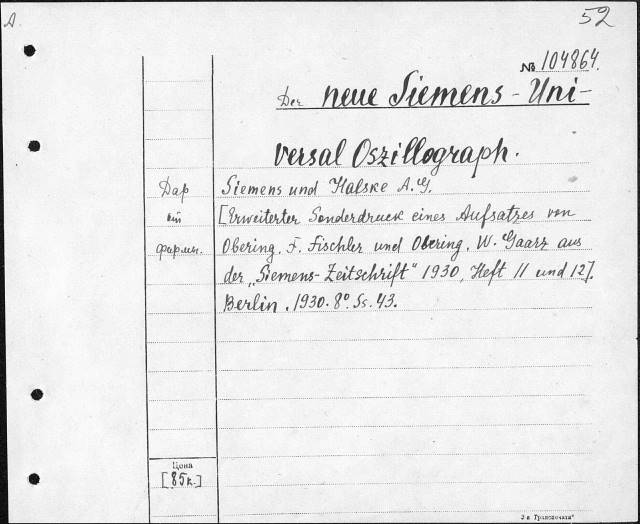 A.
52
№ 104864.
Der neue Siemens - Uni-
versal Oszillograph.
Дар
Siemens und Halske A.G.
[Erweiterter Sonderdruck eines Aufsatzes von
фирмы.
Obering. F. Fischler und Obering. W. Gaarz aus
der „Siemens-Zeitschrift" 1930, Heft 11 und 12].
Berlin. 1930. 8°. Ss. 43.
Цена
[85к.]